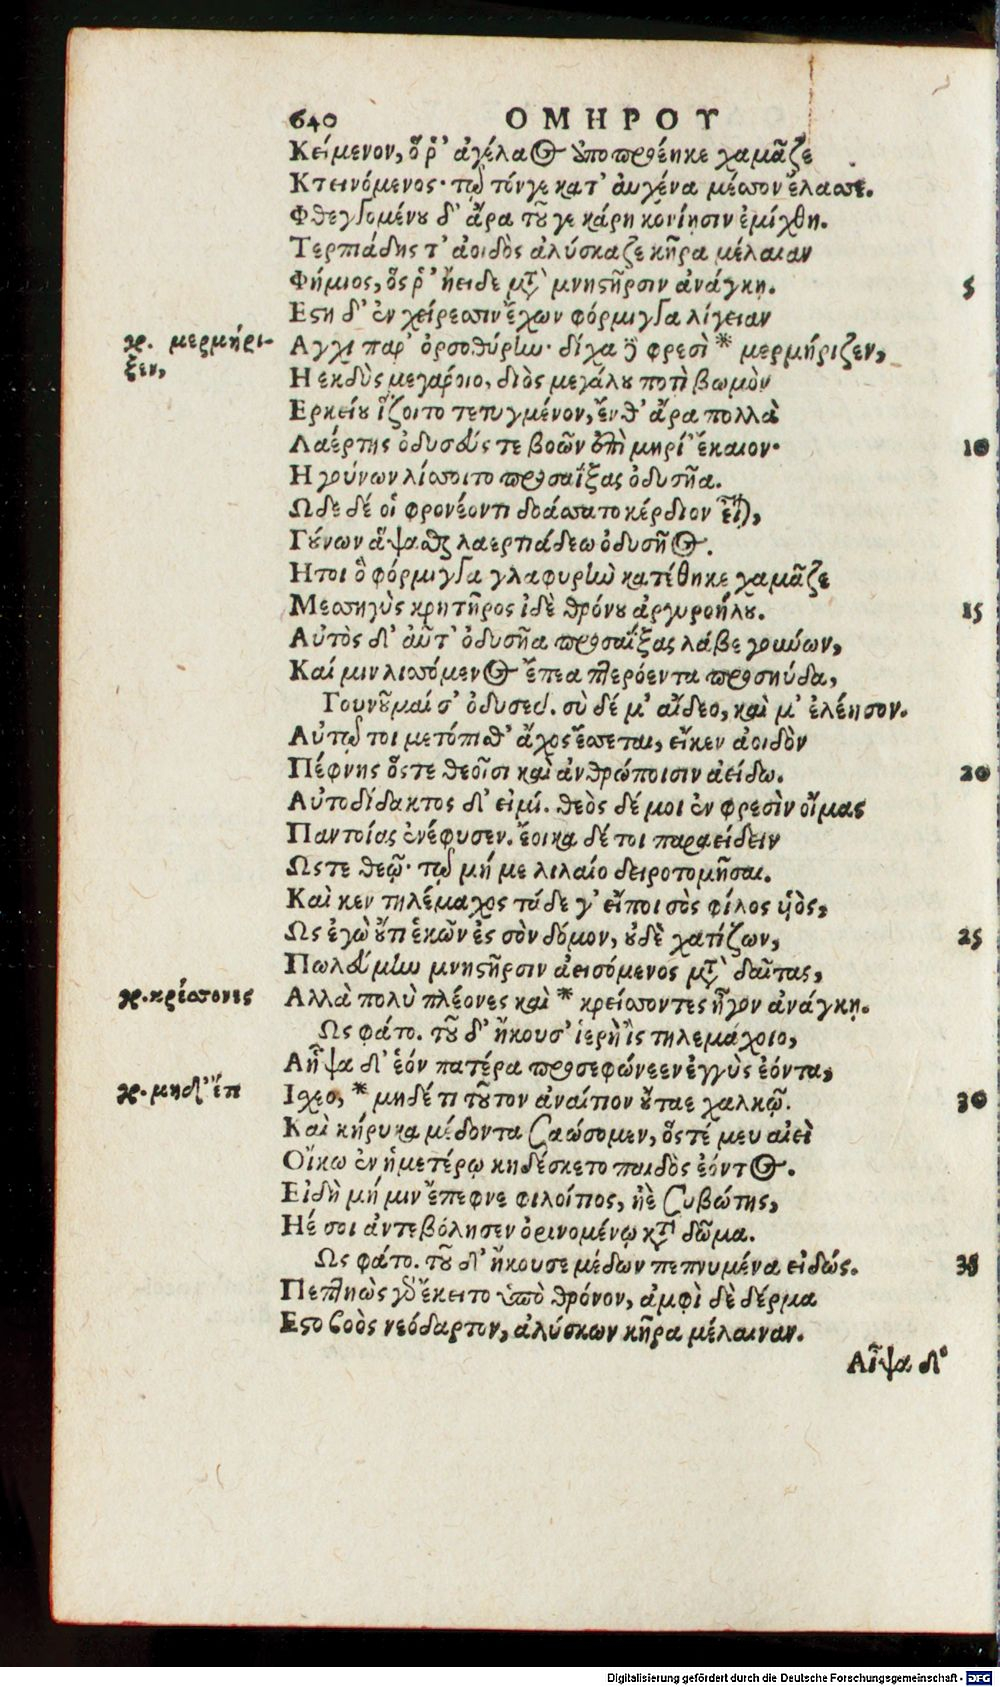 640 ΟΜΗΡΟΥ
Κείμενον, ὅ ῥ' ἀγέλαος ἀποπροέηκε χαμᾶζε
Κτεινόμενος· τῷ τόνγε κατ' αὐχένα μέσσον ἔλασσε.
Φθεγγομένου δ' ἄρα τοῦ γε κάρη κονίησιν ἐμίχθη.
Τερπιάδης τ' ἀοιδὸς ἀλύσκαζε κῆρα μέλαιαν
Φήμιος, ὅς ῥ' ἤειδε μετὰ μνηστῆρσιν ἀνάγκῃ. 5
Εστη δ' ἐν χείρεσσιν ἔχων φόρμιγγα λίγειαν
γρ. μερμήρι- Αγχι παρ' ὀρσοθύρην· δίχα δὲ φρεσὶ * μερμήριζεν,
ξεν, Η εκδὺς μεγάροιο, διὸς μεγάλου ποτὶ βωμὸν
Ερκείου ἵζοιτο τετυγμένον, ἔνθ' ἄρα πολλὰ
Λαέρτης ὀδυσσεύς τε βοῶν ἐπὶ μηρί' ἔκαιον· 10
Η γούνων λίσσοιτο προσαΐξας ὀδυσῆα.
Ωδε δέ οἱ φρονέοντι δοάσσατο κέρδιον εἶναι,
Γούνων ἅψασθαι λαερτιάδεω ὀδυσῆος.
Ητοι ὃ φόρμιγγα γλαφυρὴν κατέθηκε χαμᾶζε
Μεσσηγὺς κρητῆρος ἰδὲ θρόνου ἀργυροήλου. 15
Αὐτὸς δ' αὖτ' ὀδυσῆα προσαΐξας λάβε γούνων,
Καί μιν λισσόμενος ἔπεα πτερόεντα προσηύδα,
Γουνοῦμαί σ' ὀδυσεῦ. σὺ δέ μ' αἴδεο, καὶ μ' ἐλέησον.
Αὐτῷ τοι μετόπισθ' ἄχος ἔσσεται, εἴκεν ἀοιδὸν
Πέφνης ὅστε θεοῖσι καὶ ἀνθρώποισιν ἀείδω. 20
Αὐτοδίδακτος δ' εἰμί. θεὸς δέ μοι ἐν φρεσὶν οἴμας
Παντοίας ἐνέφυσεν. ἔοικα δέ τοι παραείδειν
Ωστε θεῷ· τῷ μή με λιλαίο δειροτομῆσαι.
Καὶ κεν τηλέμαχος τάδε γ' εἴποι σὸς φίλος υἱὸς,
Ως ἐγὼ οὔτι ἑκὼν ἐς σὸν δόμον, οὐδὲ χατίζων, 25
Πωλεύμην μνηστῆρσιν ἀεισόμενος μετὰ δαῖτας,
γρ. κρέσσονες Αλλὰ πολὺ πλέονες καὶ * κρείσσοντες ἦγον ἀνάγκῃ.
Ως φάτο. τοῦ δ' ἤκουσ' ἱερὴ ἲς τηλεμάχοιο,
Αἶψα δ' ἑόν πατέρα προσεφώνεεν ἐγγὺς ἐόντα,
γρ. μηδ' ἔπ Ισχεο, * μηδέ τι τοῦτον ἀναίτιον οὔταε χαλκῷ. 30
Καὶ κήρυκα μέδοντα σαώσομεν, ὅστέ μευ αἰεὶ
Οἴκω ἐν ἡμετέρῳ κηδέσκετο παιδὸς ἐόντος.
Εἰδὴ μή μιν ἔπεφνε φιλοίτιος, ἠὲ συβώτης,
Ηέ σοι ἀντεβόλησεν ὀρινομένῳ κατὰ δῶμα.
Ως φάτο. τοῦ δ' ἤκουσε μέδων πεπνυμένα εἰδώς. 35
Πεπτηὼς γὰρ ἔκειτο ὑπὸ θρόνον, ἀμφὶ δὲ δέρμα
Εστο βοὸς νεόδαρτον, ἀλύσκων κῆρα μέλαιναν.
Αἶψα δ'
Digitalisierung gefördert durch die Deutsche Forschungsgemeinschaft - DFG